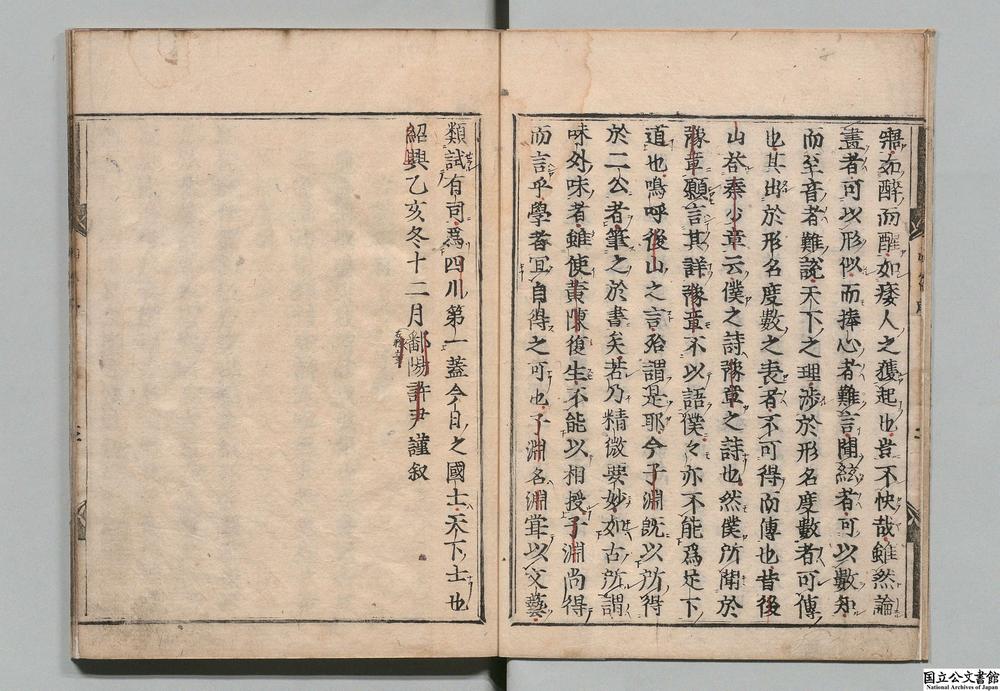 寤如醉而醒如痿人之獲起也豈不快哉雖然論
畫者可以形似而捧心者難言聞絃者可以數知
而至音者難說天下之理渉於形名度數者可傳
也其出於形名度數之表者不可得而傳也昔後
山荅秦少章云僕之詩豫章之詩也然僕所聞於
豫章願言其詳豫章不以語僕々亦不能爲足下
道也嗚呼後山之言殆謂是耶今子淵旣以所得
於二公者筆之於書矣若乃精微要妙如古所謂
味外味者雖使黄陳復生不能以相授子淵尚得
而言乎學者冝自得之可也子淵名淵甞以文藝
類試有司爲四川第一蓋今日之國士天下士也
紹興乙亥冬十二月鄱陽許尹謹叙
国立公文書館
National Archives of Japan